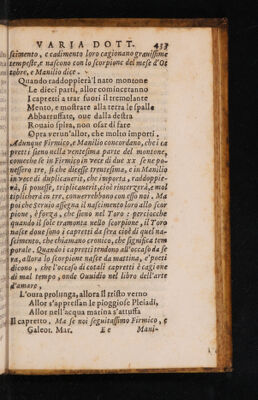 VARIA DOTT. 433
scimento, e cadimento loro cagionano grauissime
tempeste, e nascono con lo scorpione del mese d'Ot
tobre, e Manilio dice.
Quando raddoppierà'l nato montone
Le dieci parti, allor comincetanno
I capretti a trar fuori il tremolante
Mento, e mostrare alla terra le spalle
Abbaruffate, oue dalla destra
Rouaio spira, non osar di fare
Opra verun'allor, che molto importi.
Adunque Firmico, e Manilio concordano, che i ca
pretti sieno nella ventesima parte del montone,
comeche se in Firmico in vece di due xx se ne po-
nessero tre, si che dicesse trentesima, e in Manilio
in vece di duplicauerit, che importa, raddoppie-
rà, si ponesse, triplicauerit, cioè rinterzerà, e mol
tiplicherà in tre, conuerrebbono con esso noi. Ma
poi che Seruio assegna il nascimento loro allo scor
pione, è forza, che sieno nel Toro: perciocche
quando il sole tramonta nello scorpione, il Toro
nasce doue sono i capretti da sera cioè di quel na-
scimento, che chiamano cronico, che significa tem
porale. Quando i capretti tendono all'occaso da se
ra, allora lo scorpione nasce da mattina, e' poeti
dicono, che l'occaso di cotali capretti è cagione
di mal tempo, onde Ouuidio nel libro dell'arte
d'amare,
L'opra prolunga, allora il tristo verno
Allor s'appressan le piogiose Pleiadi,
Allor nell'acqua marina s'attuffa
Il capretto. Ma se noi seguitassimo Firmico, e
Galeot. Mar. E e Mani-